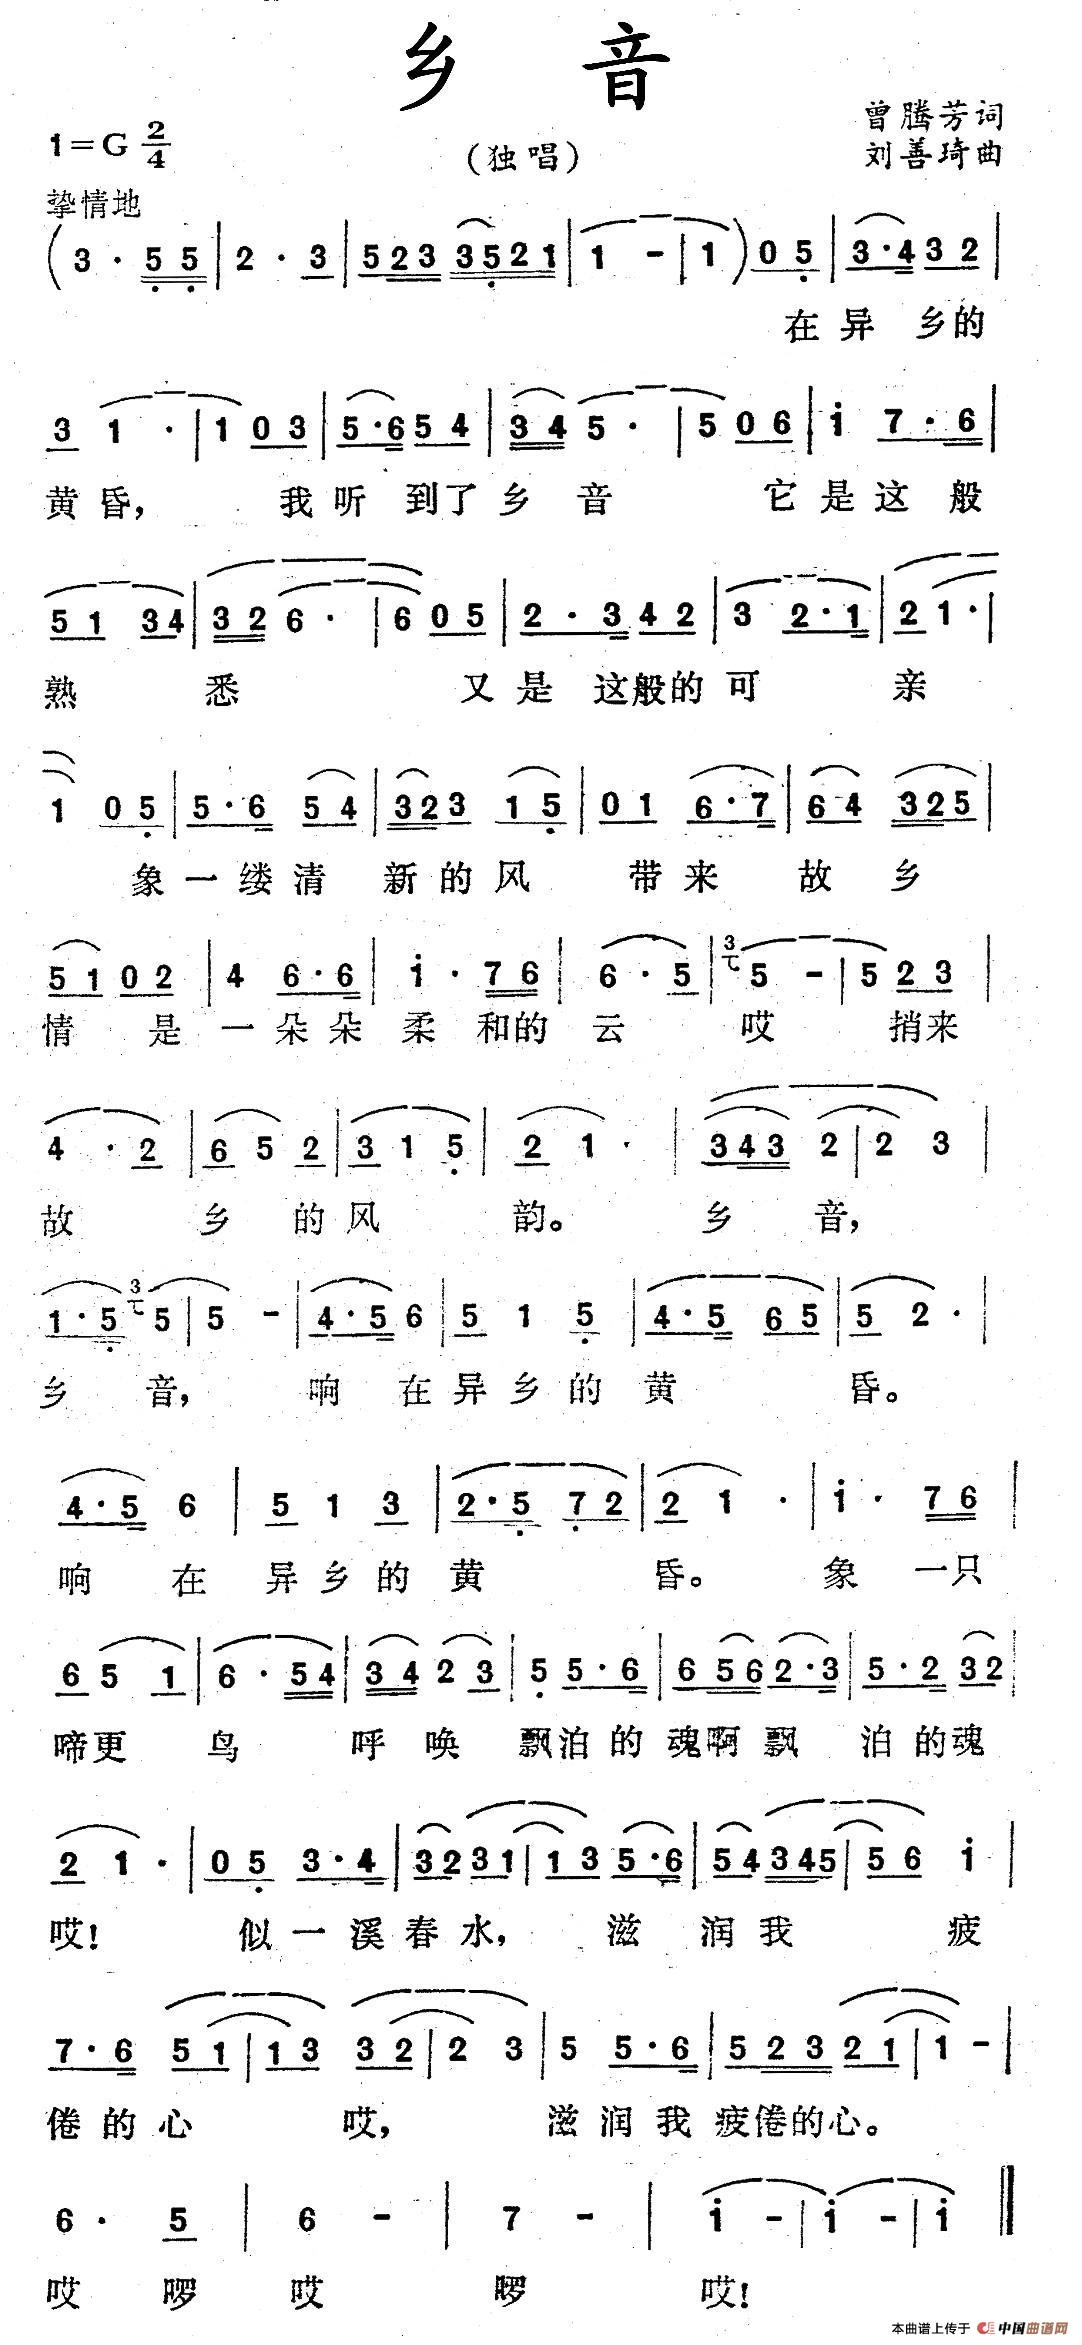 乡 音
1=G 2/4
(独唱)
曾腾芳词
刘善琦曲
挚情地
(3 · 5 5 | 2 · 3 | 5 2 3 3 5 2 1 | 1 - | 1 ) 0 5 | 3 · 4 3 2 |
在异 乡的
3 1 · | 1 0 3 | 5 · 6 5 4 | 3 4 5 · | 5 0 6 | i 7 · 6 |
黄昏， 我听 到了乡 音 它是这 般
5 1 3 4 | 3 2 6 · | 6 0 5 | 2 · 3 4 2 | 3 2 · 1 | 2 1 · |
熟 悉 又是 这般的可 亲
1 0 5 | 5 · 6 5 4 | 3 2 3 1 5 | 0 1 6 · 7 | 6 4 3 2 5 |
象一缕清 新的风 带来 故 乡
5 1 0 2 | 4 6 · 6 | i · 7 6 | 6 · 5 | 3 5 - | 5 2 3 |
情 是 一朵朵柔 和的 云 哎 捎来
4 · 2 | 6 5 2 | 3 1 5 | 2 1 · | 3 4 3 2 | 2 3 |
故 乡 的风 韵。 乡 音，
1 · 5 3 5 | 5 - | 4 · 5 6 | 5 1 5 | 4 · 5 6 5 | 5 2 · |
乡 音， 响 在异乡的黄 昏。
4 · 5 6 | 5 1 3 | 2 · 5 7 2 | 2 1 · | i · 7 6 |
响 在 异乡的黄 昏。 象 一只
6 5 1 | 6 · 5 4 | 3 4 2 3 | 5 5 · 6 | 6 5 6 2 · 3 | 5 · 2 3 2 |
啼更 鸟 呼 唤 飘泊的魂啊飘 泊的魂
2 1 · | 0 5 3 · 4 | 3 2 3 1 | 1 3 5 · 6 | 5 4 3 4 5 | 5 6 i |
哎！ 似一溪春水， 滋 润我 疲
7 · 6 5 1 | 1 3 3 2 | 2 3 | 5 5 · 6 | 5 2 3 2 1 | 1 - |
倦的心 哎， 滋润我疲倦的心。
6 · 5 | 6 - | 7 - | i - | i - | i ‖
哎 啰 哎 啰 哎！
本曲谱上传于 中国曲谱网